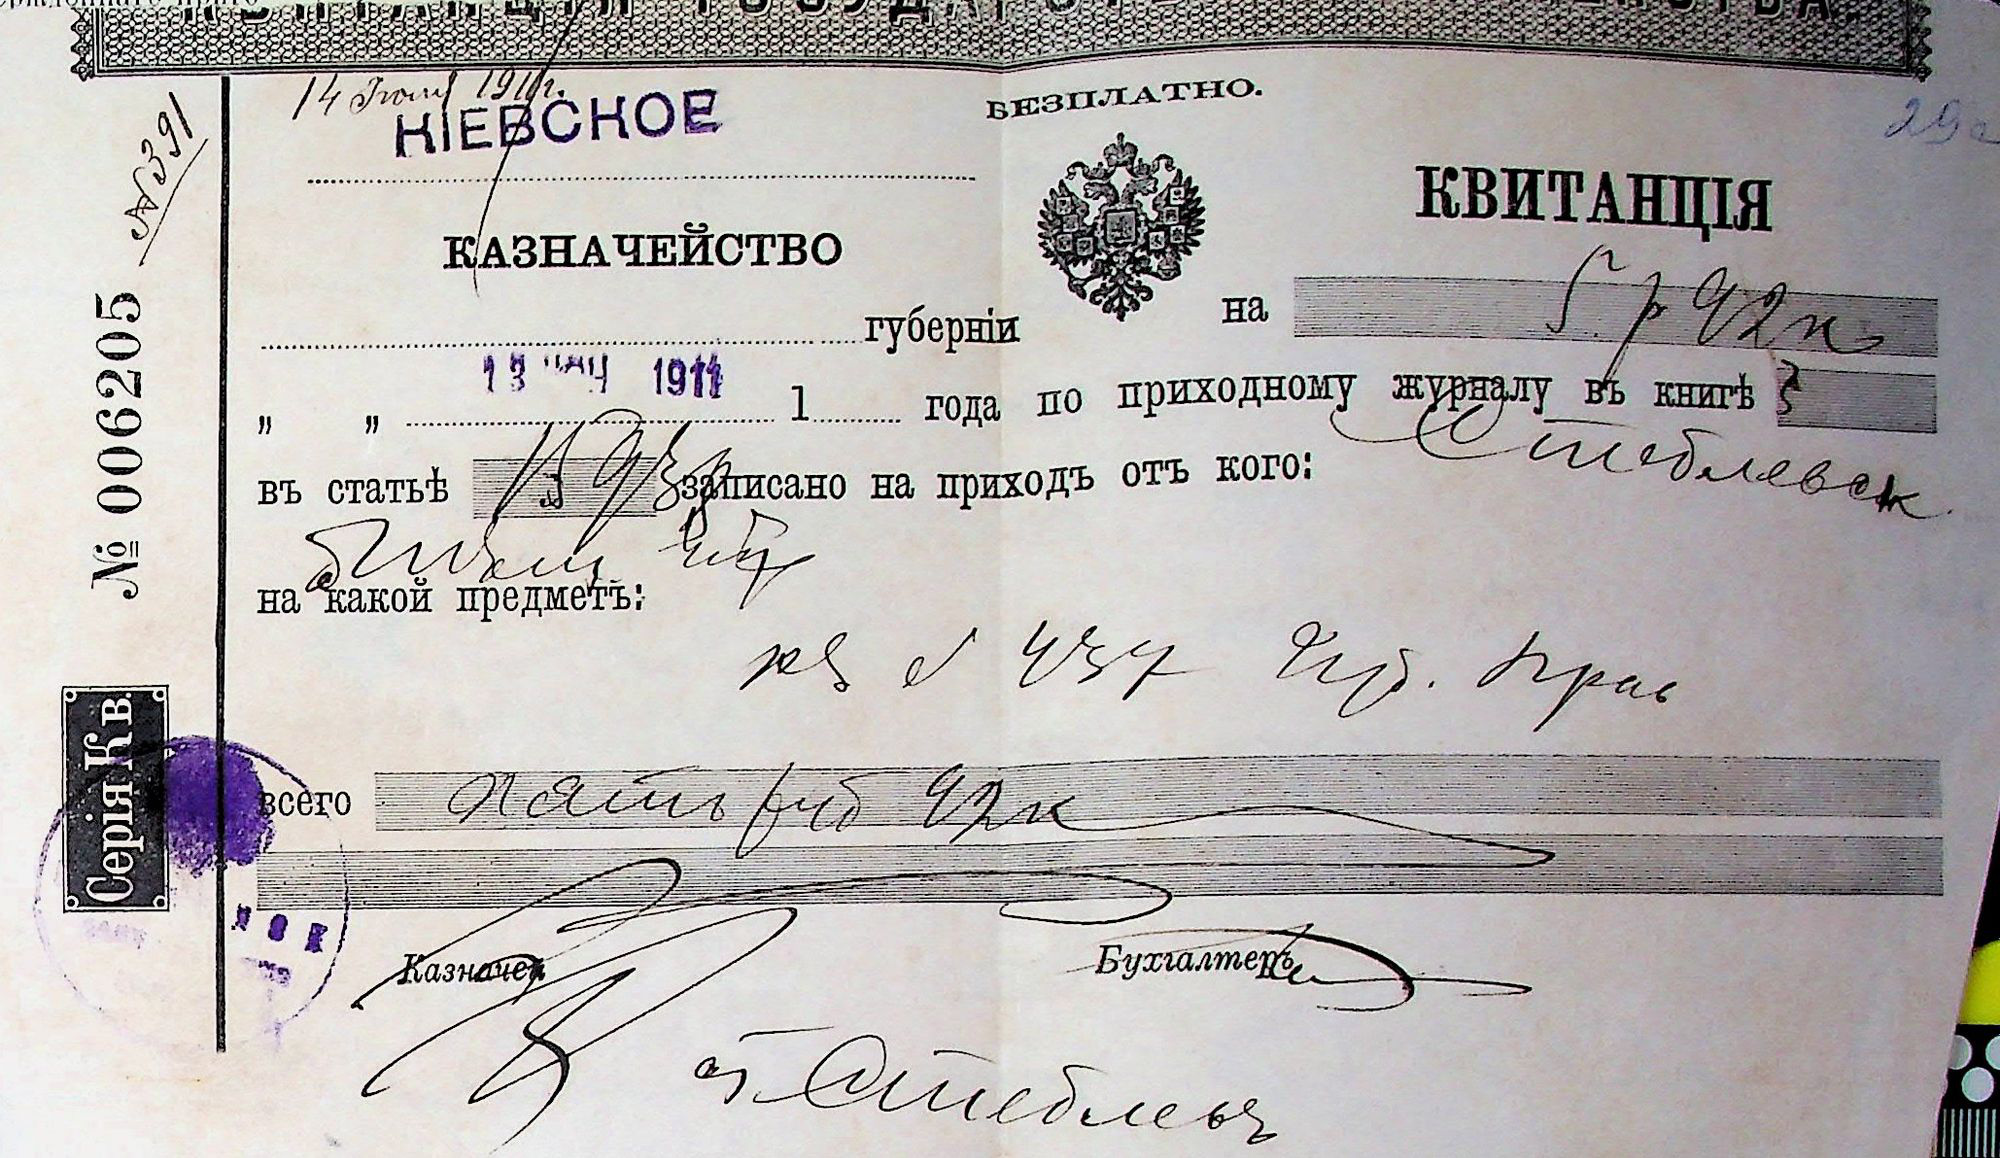 КВИТАНЦІЯ ГОСУДАРСТВ
14 Іюня 1911г.
КІЕВСКОЕ
БЕЗПЛАТНО.
29
№391
КАЗНАЧЕЙСТВО
КВИТАНЦІЯ
губерніи
на 5 р 92 к
" " 13 1911 1 года по приходному журналу въ книгѣ 3
въ статьѣ записано на приходъ отъ кого: Стеблевск
на какой предметъ:
№ 437 Губ. Прав
всего Пять руб 92 к
Казначей
Бухгалтеръ
Стеблевъ
№ 006205
Серія Кв.